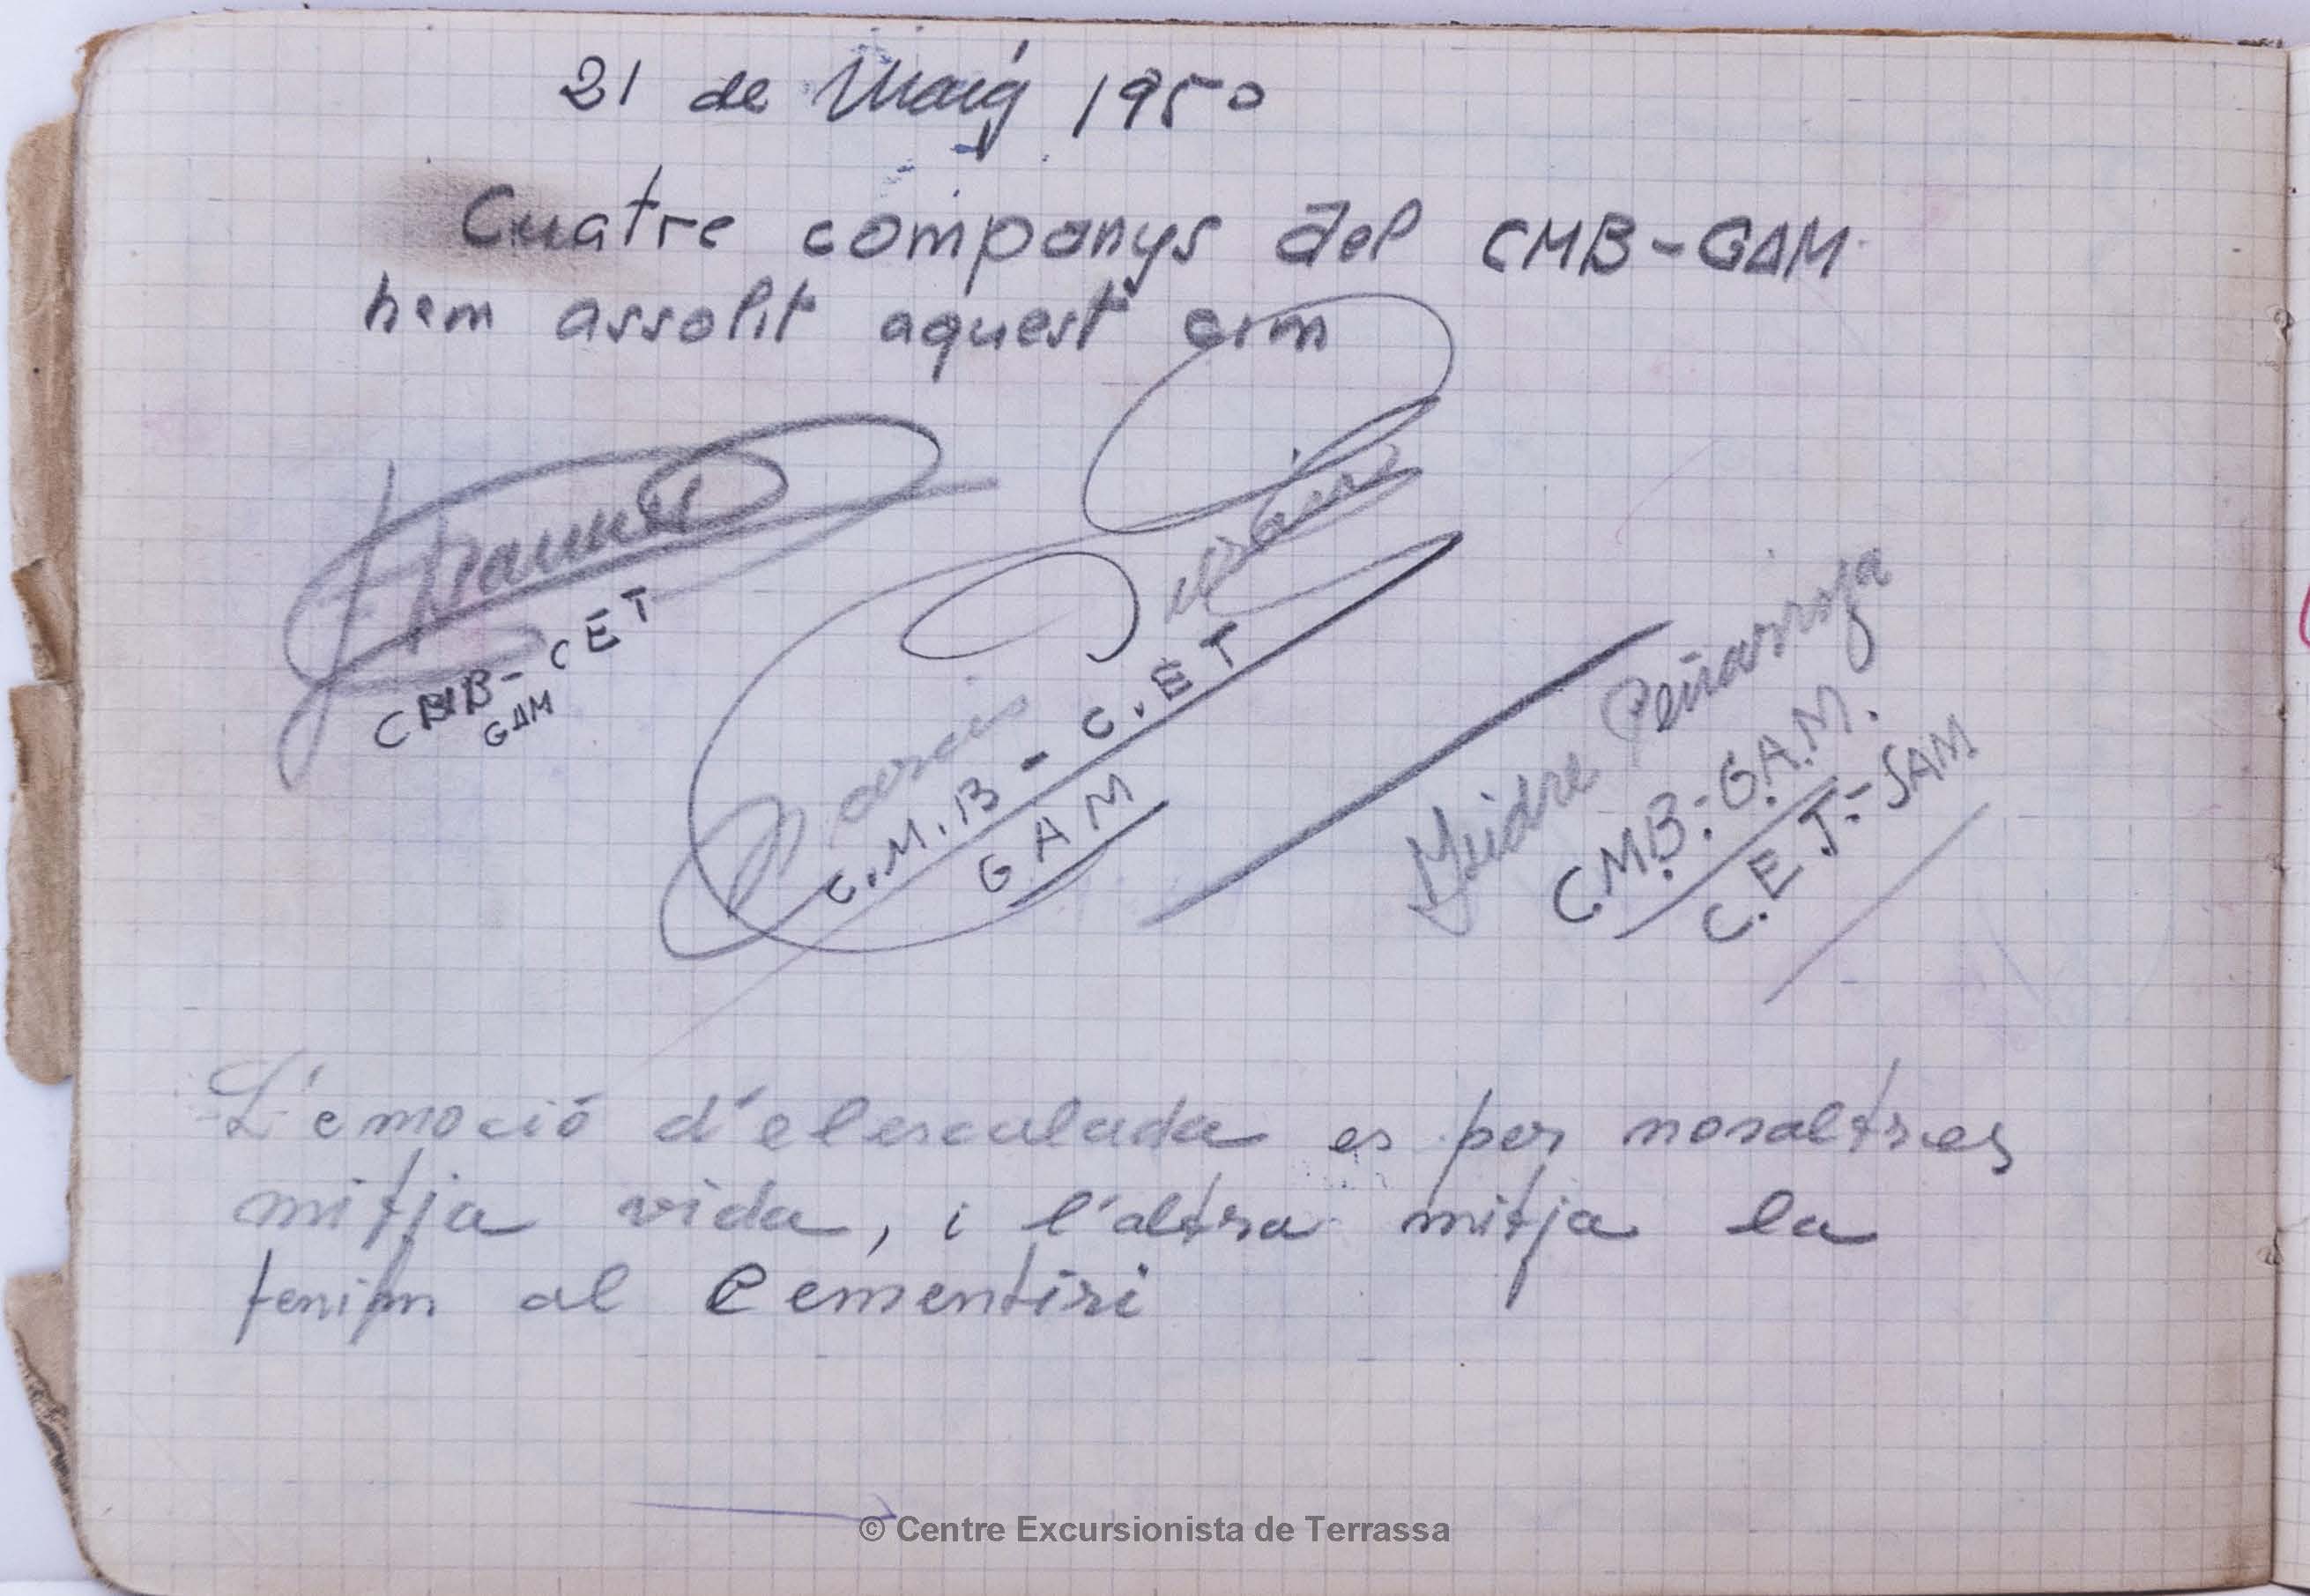 21 de Maig 1950
Cuatre companys del CMB-GAM
hem assolit aquest cim
CMB-CET
GAM
Narcis
C.M.B - C.ET
GAM
Isidre Peñarroja
C.M.B.-G.A.M.
C.E.T.-SAM
L'emoció d'elescalada es per nosaltres
mitja vida, i l'altra mitja la
tenim al Cementiri
© Centre Excursionista de Terrassa